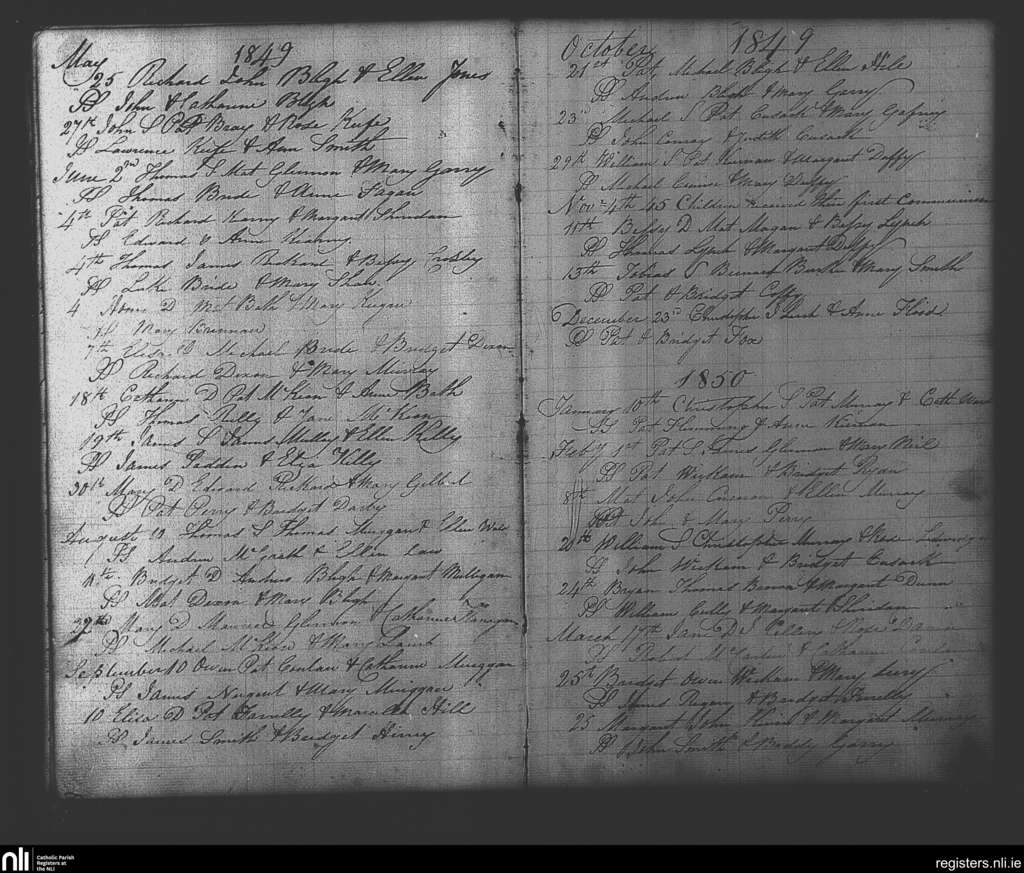 May 1849
25 Richard John Bligh & Ellen Jones
PS John & Catharine Bligh
27th John S Pat Bray & Rose Keefe
PS Lawrence Keefe & Ann Smith
June 2nd Thomas S Mat Glennon & Mary Garry
PS Thomas Bride & Anne Fagan
4th Pat Richard Karny & Margaret Sheridan
PS Edward & Anne Kearny
4th Thomas James Pickard & Bessy Crosby
PS Luke Bride & Mary Shaw
4 Anne D Mat Bath & Mary Keegan
PS Mary Brennan
7th Eliza D Michael Bride & Bridget Dixon
PS Richard Dixon & Mary Murray
18th Catharine D Pat McKeon & Anne Bath
PS Thomas Reilly & Jane McKeon
19th James S James Mully & Ellen Kelly
PS James Padden & Eliza Kelly
30th Mary D Edward Pickard & Mary Gilbert
PS Pat Perry & Bridget Darby
August 10 Thomas S Thomas Muggan & Ellen
PS Andrew McGrath & Ellen Law
Bridget D Andrew Bligh & Margaret Mulligan
PS Mat Dixon & Mary Bligh
Mary D Maurice Glennon & Catharine Flanagan
PS Michael McKeon & Mary Lamb
September 10 Owen Pat Conlan & Catharine Muggan
PS James Nugent & Mary Muggan
10 Eliza D Pat Farrelly & Hill
PS James Smith & Bridget
October 1849
21st Pat Michael Bligh & Ellen
PS Andrew Bligh & Mary Garry
23rd Michael S Pat Cusack & Mary Gafney
PS John Conroy & Judith Cusack
29th William S Pat Kiernan & Margaret Duffy
PS Michael & Mary Duffy
Nov 4th 45 Children received their first Communion
11th Bessy D Mat Magan & Bessy Lynch
PS Thomas Lynch & Margaret Duffy
15th Tobias S Bernard Burke & Mary Smith
PS Pat & Bridget
December 23rd Christopher S & Anne Flood
PS Pat & Bridget Fox
1850
January 10th Christopher S Pat Murray & Cath Ward
PS Pat Flemming & Anne Kiernan
Feby 1st Pat S James Glennon & Mary Neil
PS Pat Wickham & Bridget Ryan
8th Mat John Corcoran & Ellen Murray
PS John & Mary Perry
20th William S Christopher Murray & Rose Ledwidge
PS John Wickam & Bridget Cusack
24th Bryan Thomas & Margaret Dunn
PS William Cully & Margaret Sheridan
March 17th Jane D J & Rose
PS Robert & Catharine
25th Bridget Owen Wickham & Mary
PS James Regan & Bridget Farrelly
25 Margaret John & Margaret Murray
PS John Smith & Biddy Garry
nli
Catholic Parish
Registers at
the NLI
registers.nli.ie